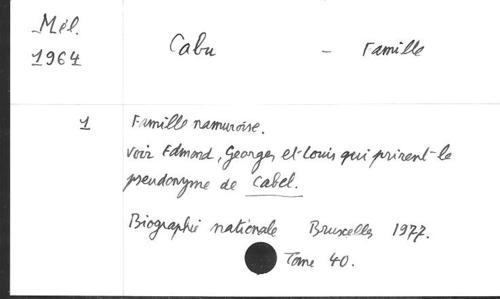 Mél.
1964
Cabu - Famille
1
Famille namuroise.
voir Edmond, Georges et Louis qui prirent le
pseudonyme de Cabel.
Biographie nationale Bruxelles 1977.
Tome 40.